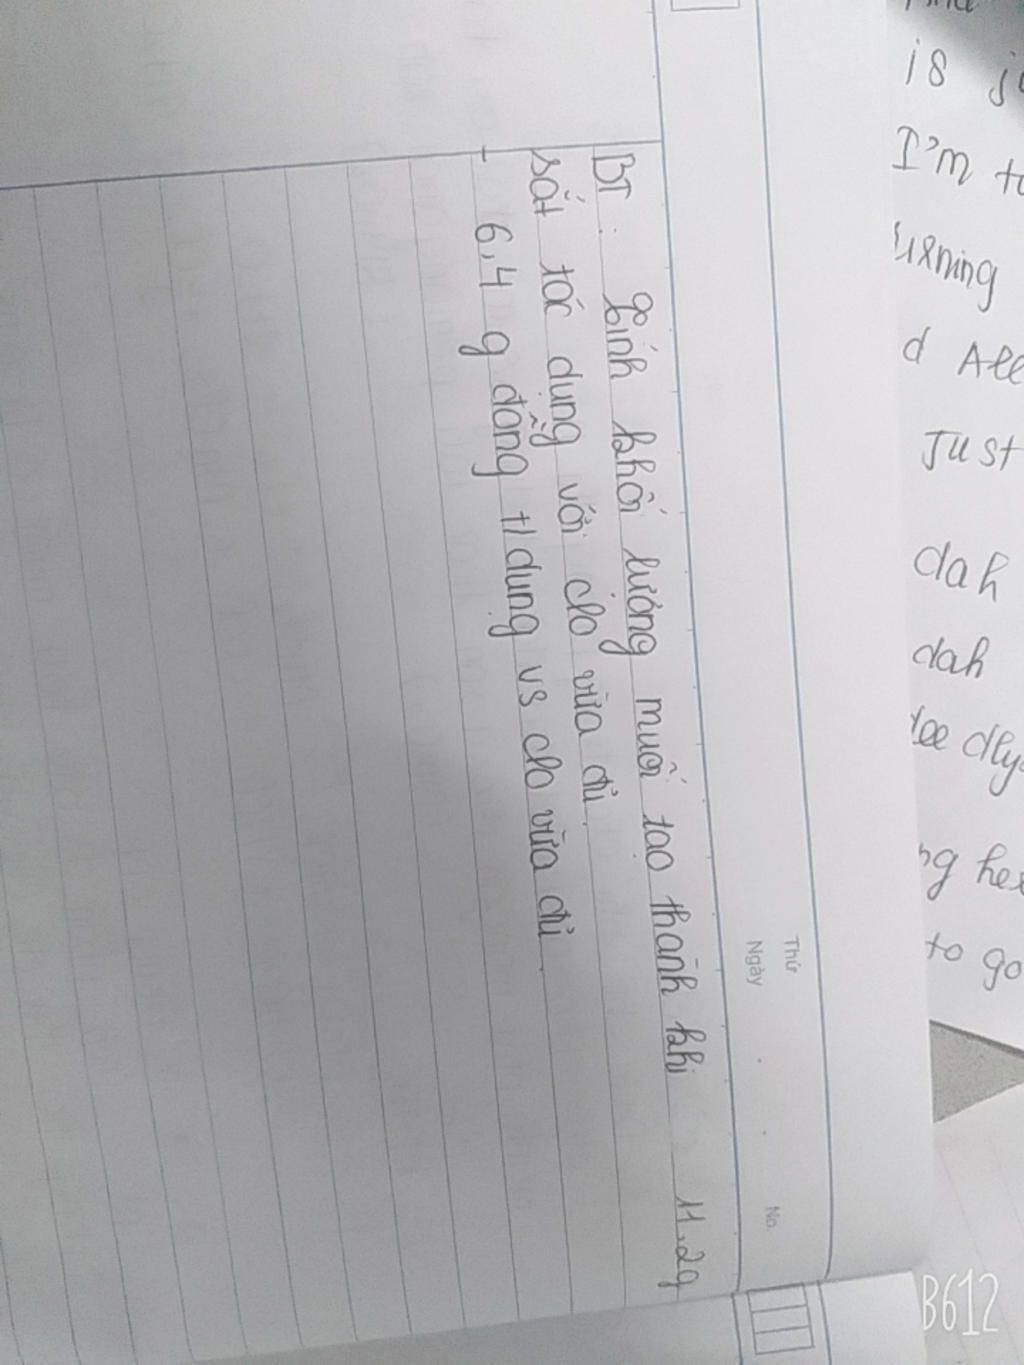 Thứ
Ngày
No.
BT: Tính khối lượng muối tạo thành khi 11,2g
sắt tác dụng với clo vừa đủ.
- 6,4 g đồng t/dụng vs clo vừa đủ.
is
I'm
d All
Just
dah
dah
to go
B612